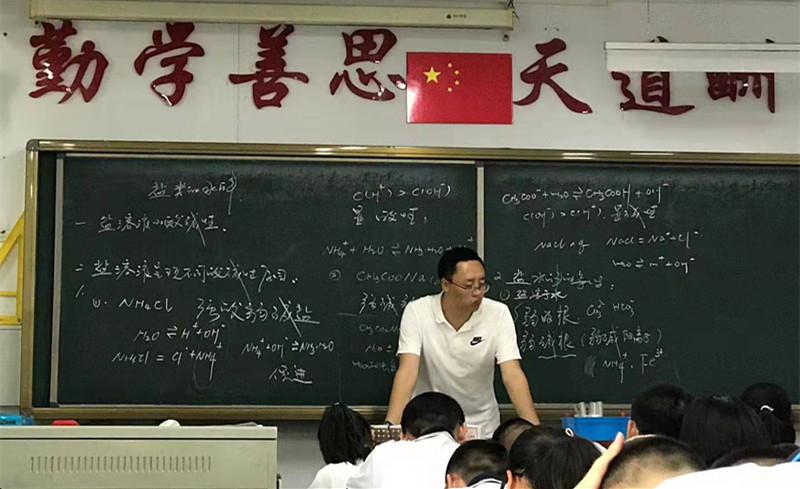 勤学善思 天道酬
盐类的水解
一 盐溶液的酸碱性
二 盐溶液呈现不同酸碱性原因
1.
(1) NH₄Cl 强酸弱碱盐
H₂O ⇌ H⁺+OH⁻
NH₄Cl = Cl⁻+NH₄⁺
NH₄⁺+OH⁻ ⇌ NH₃·H₂O
促进
C(H⁺) > C(OH⁻)
显酸性
NH₄⁺ + H₂O ⇌ NH₃·H₂O
② CH₃COONa
CH₃COO⁻+H₂O ⇌ CH₃COOH + OH⁻
C(OH⁻) > C(H⁺) 显碱性
NaCl NaCl = Na⁺+Cl⁻
H₂O ⇌ H⁺+OH⁻
2 盐
①
弱酸根 CO₃²⁻ HCO₃⁻
弱碱根 (弱碱阳离子)
NH₄⁺ . Fe³⁺